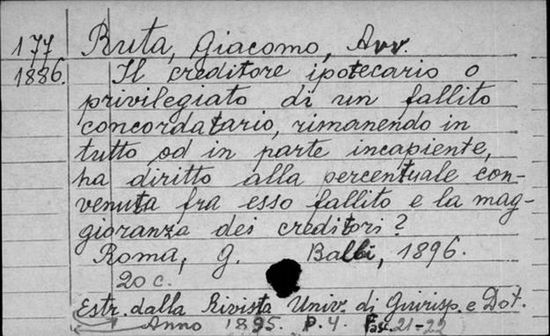 177 Ruta, Giacomo, Avv.
1886. Il creditore ipotecario o
privilegiato di un fallito
concordatario, rimanendo in
tutto od in parte incapiente,
ha diritto alla percentuale con-
venuta fra esso fallito e la mag-
gioranza dei creditori?
Roma, G. Balbi, 1896.
20 c.
Estr. dalla Rivista Univ. di Giurisp. e Dot.
Anno 1895. P. 4. Fas. 21-22